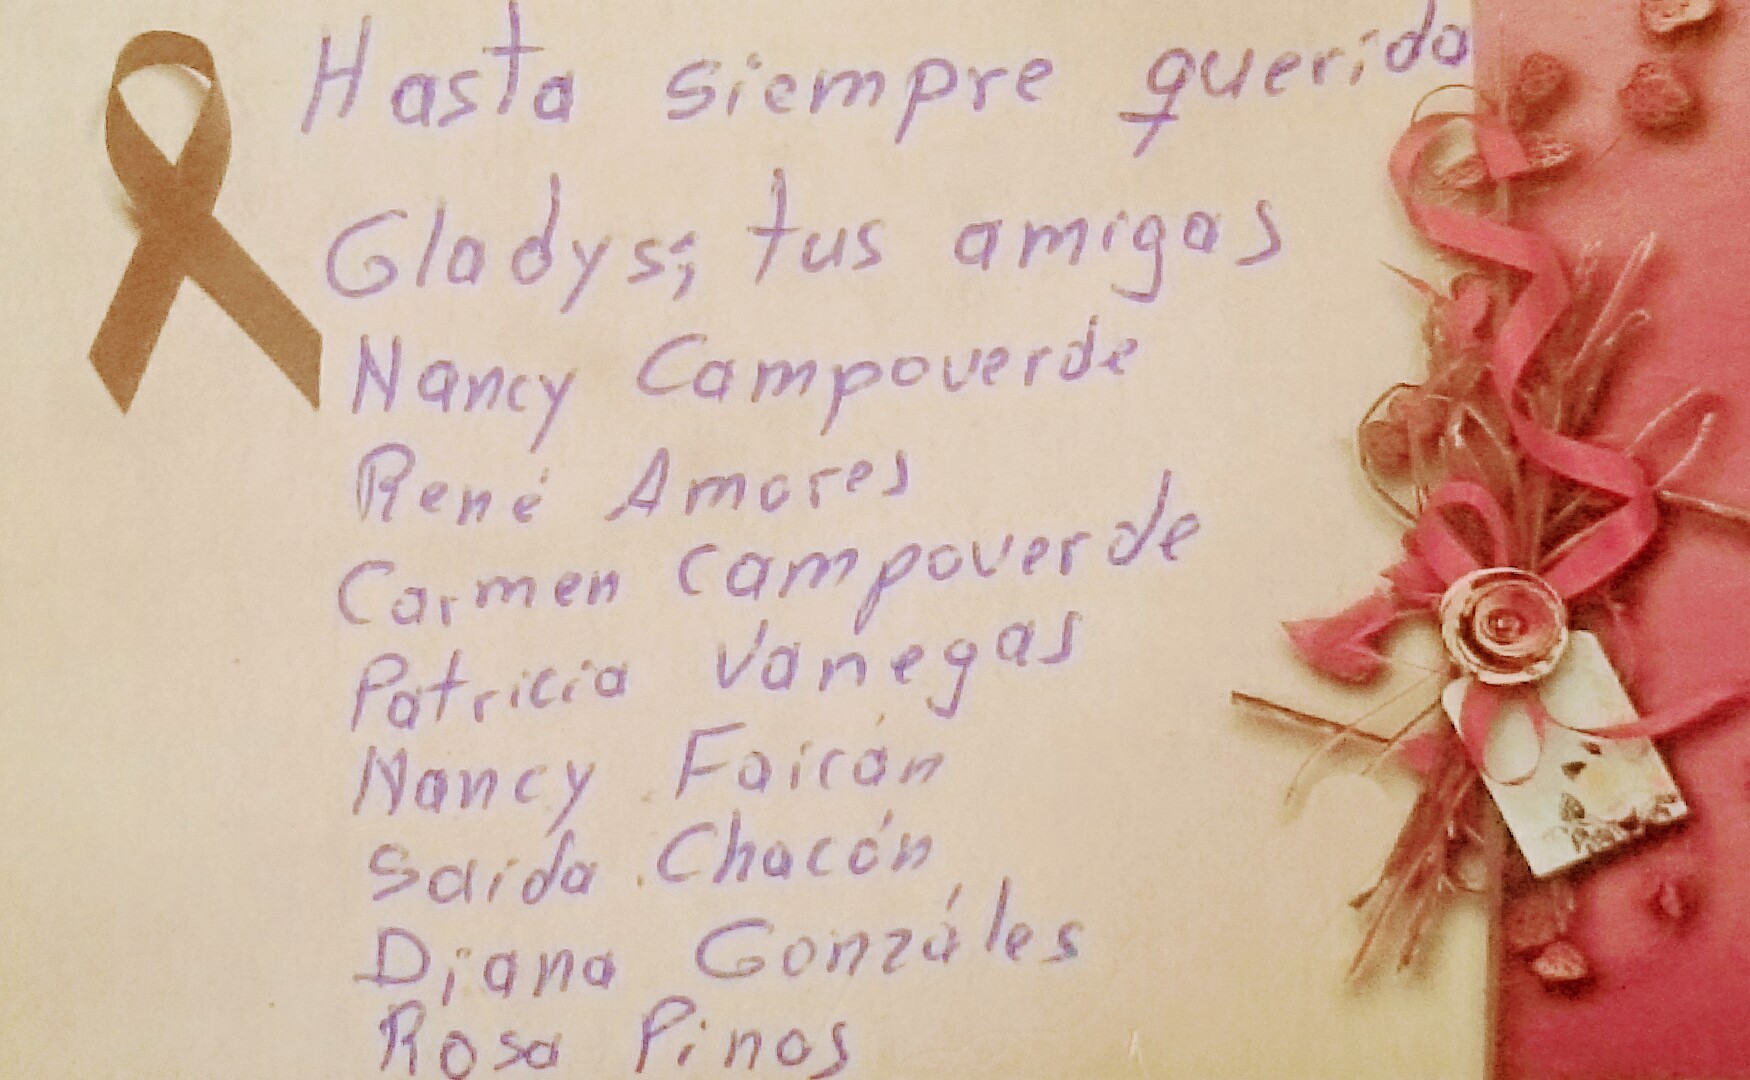 Hasta siempre querida
Gladys; tus amigas
Nancy Campoverde
René Amores
Carmen Campoverde
Patricia Vanegas
Nancy Faicán
Saida Chacón
Diana Gonzáles
Rosa Pinos